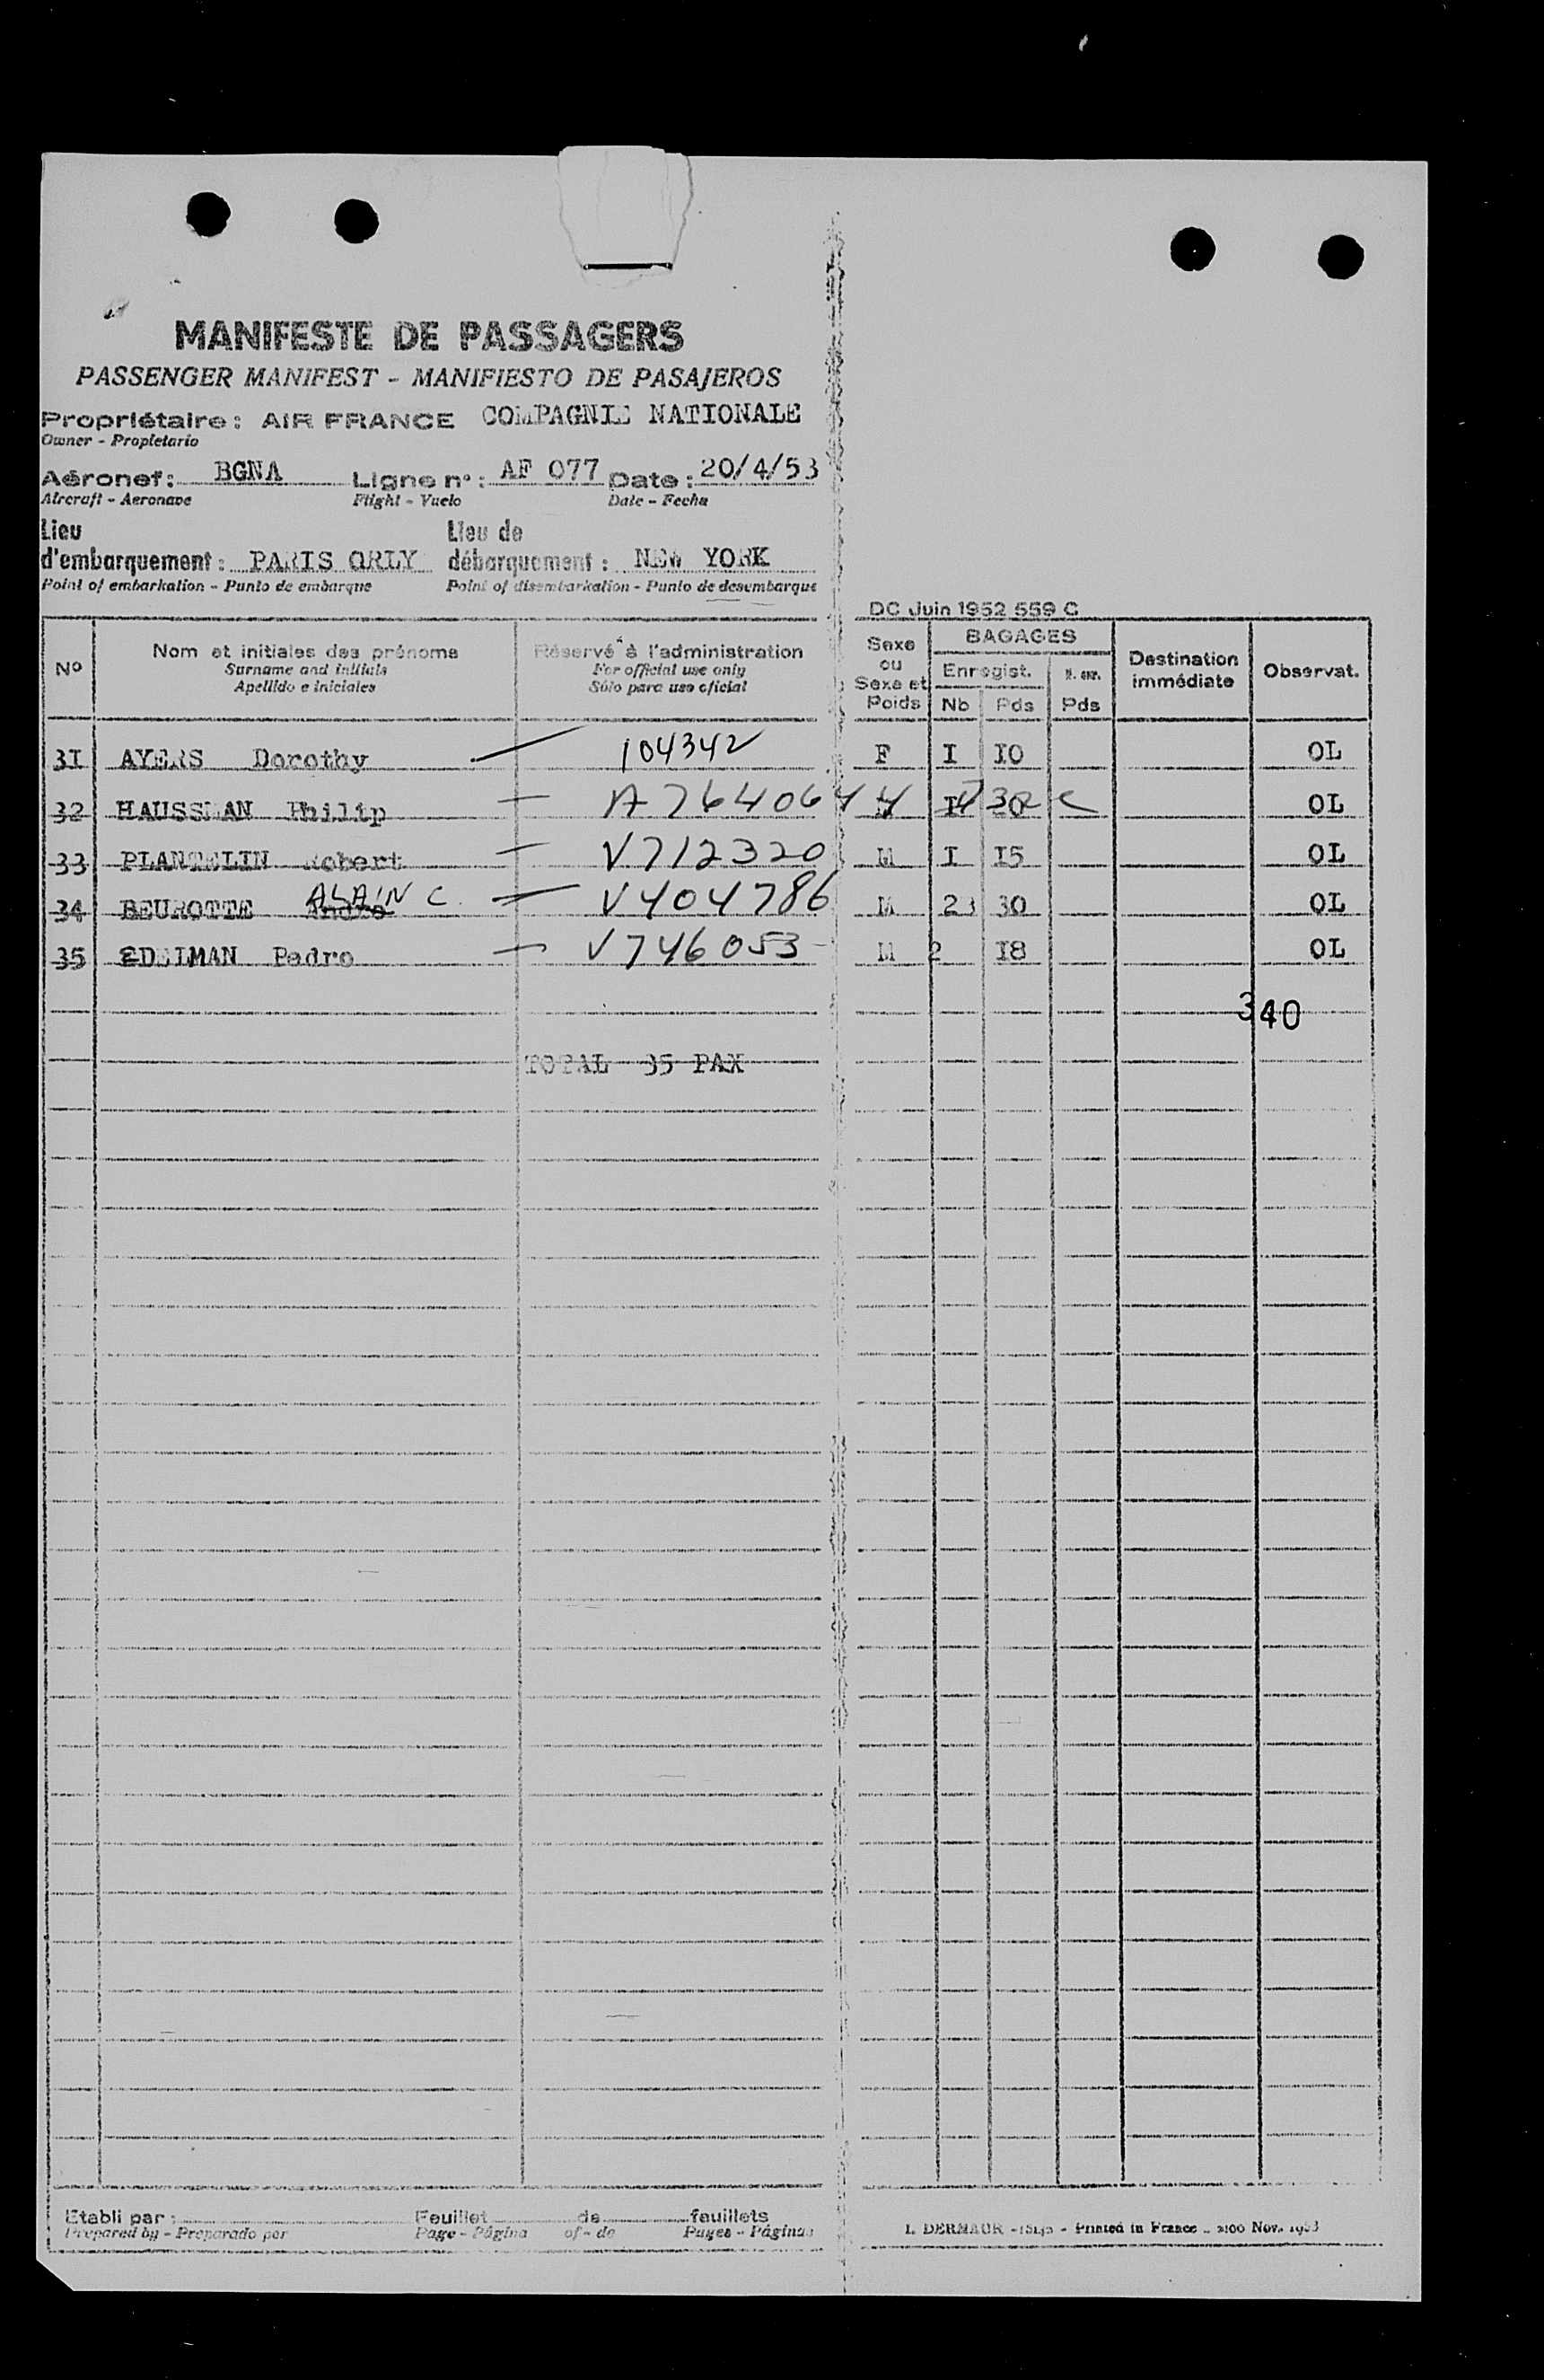 MANIFESTE DE PASSAGERS
PASSENGER MANIFEST - MANIFIESTO DE PASAJEROS
Propriétaire : AIR FRANCE COMPAGNIE NATIONALE
Owner - Propietario
Aéronef : BGNA Ligne n° : AF 077 Date : 20/4/53
Aircraft - Aeronave Flight - Vuelo Date - Fecha
Lieu d'embarquement : PARIS ORLY Lieu de débarquement : NEW YORK
Point of embarkation - Punto de embarque Point of disembarkation - Punto de desembarque
DC Juin 1952 559 C
N° Nom et initiales des prénoms Réservé à l'administration Sexe ou Sexe et Poids BAGAGES Destination immédiate Observat.
Surname and initials For official use only Enregist.
Apellido e iniciales Sólo para uso oficial Nb Pds Pds
3I AYERS Dorothy 104342 F I I0 OL
32 HAUSSMAN Philip A 7640644 I 20 OL
33 PLANTELIN Robert V712320 M I I5 OL
34 BEUROTTE ALAIN C. V404786 M 2 30 OL
35 EDELMAN Pedro V746053 M 2 I8 OL
340
TOTAL 35 PAX
Etabli par : Feuillet de feuillets
Prepared by - Preparado por Page - Página of - de Pages - Páginas
Printed in France